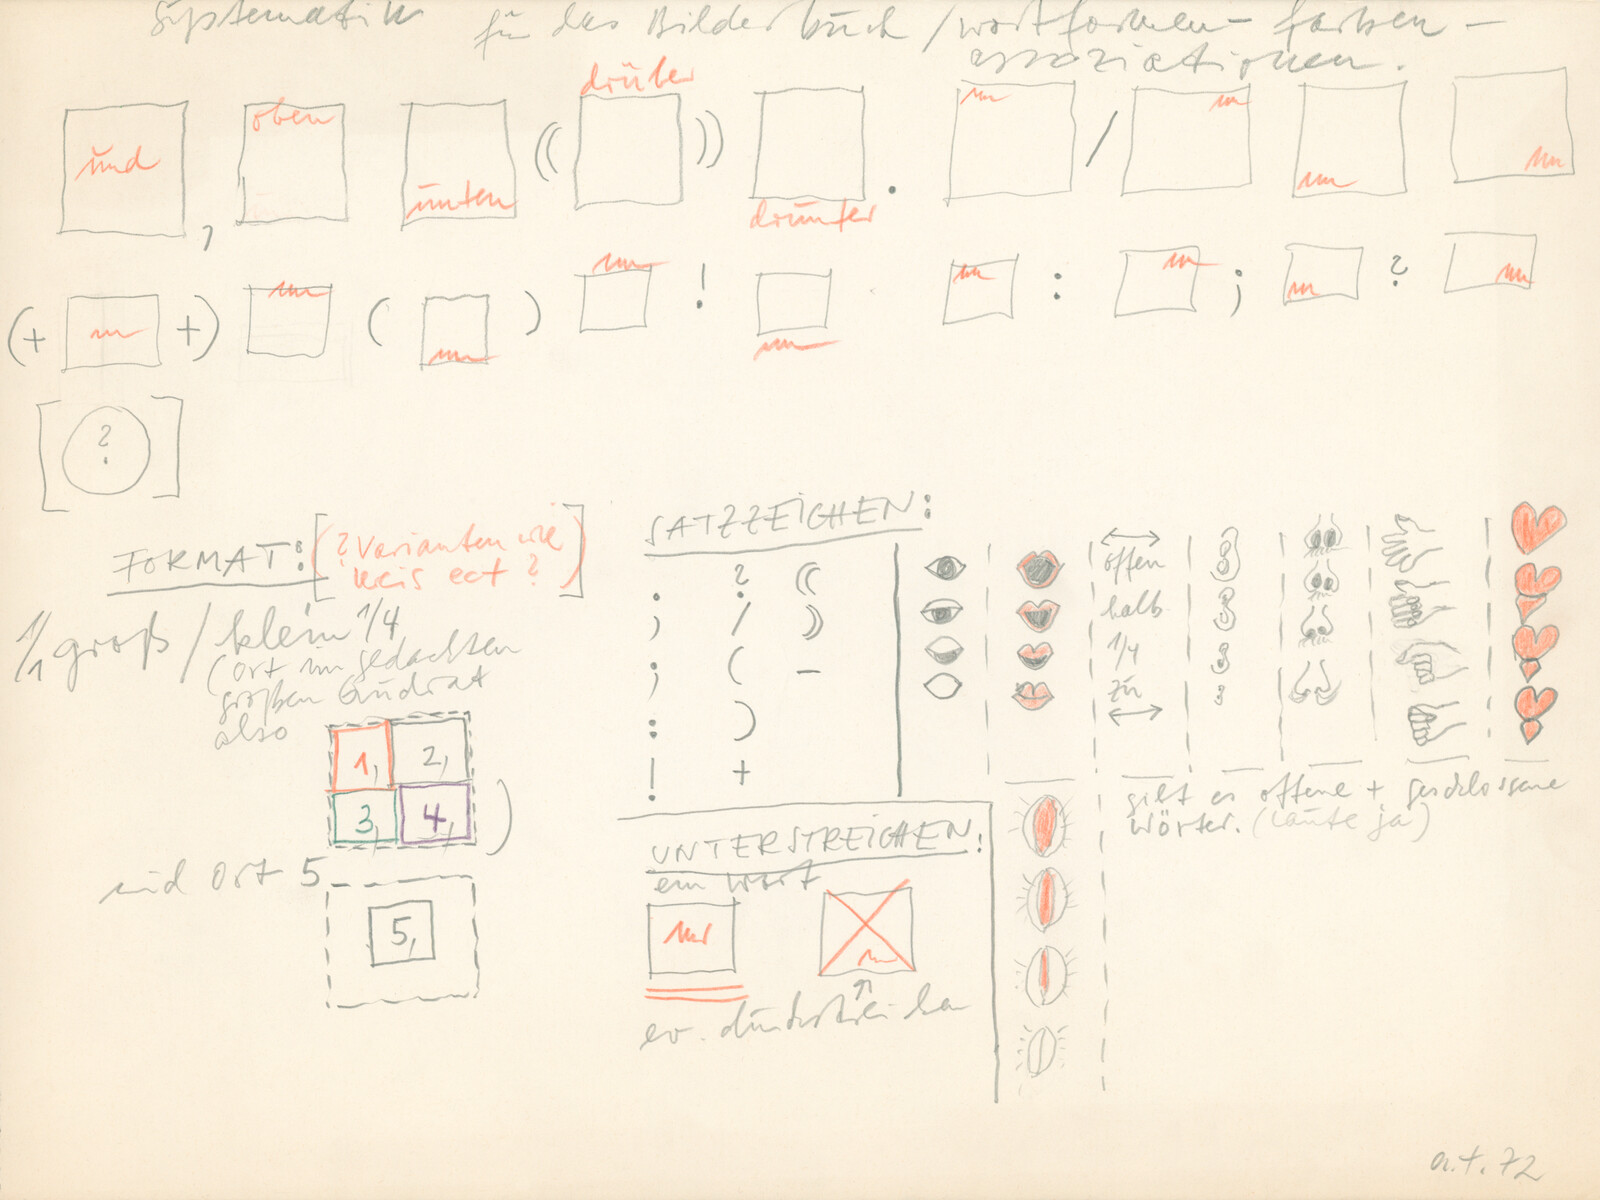 Systematik für das Bilderbuch / wortformen – farben –
assoziationen.
und , oben unten (( drüber )) drunter . /
(+ +) ( ) ! : ; ?
[ ? ]
FORMAT: [(? Varianten wie
kreis ect ?)]
1/1 groß / klein 1/4
(ort im gedachten
großen Quadrat
also
1, 2,
3, 4, )
und Ort 5
5,
SATZZEICHEN:
. ? ((
, / ))
; ( –
: )
! +
offen
halb
1/4
zu
gilt es offene + geschlossene
wörter. (laute ja)
UNTERSTREICHEN:
ein wort
ev. durchstreichen
a.t. 72